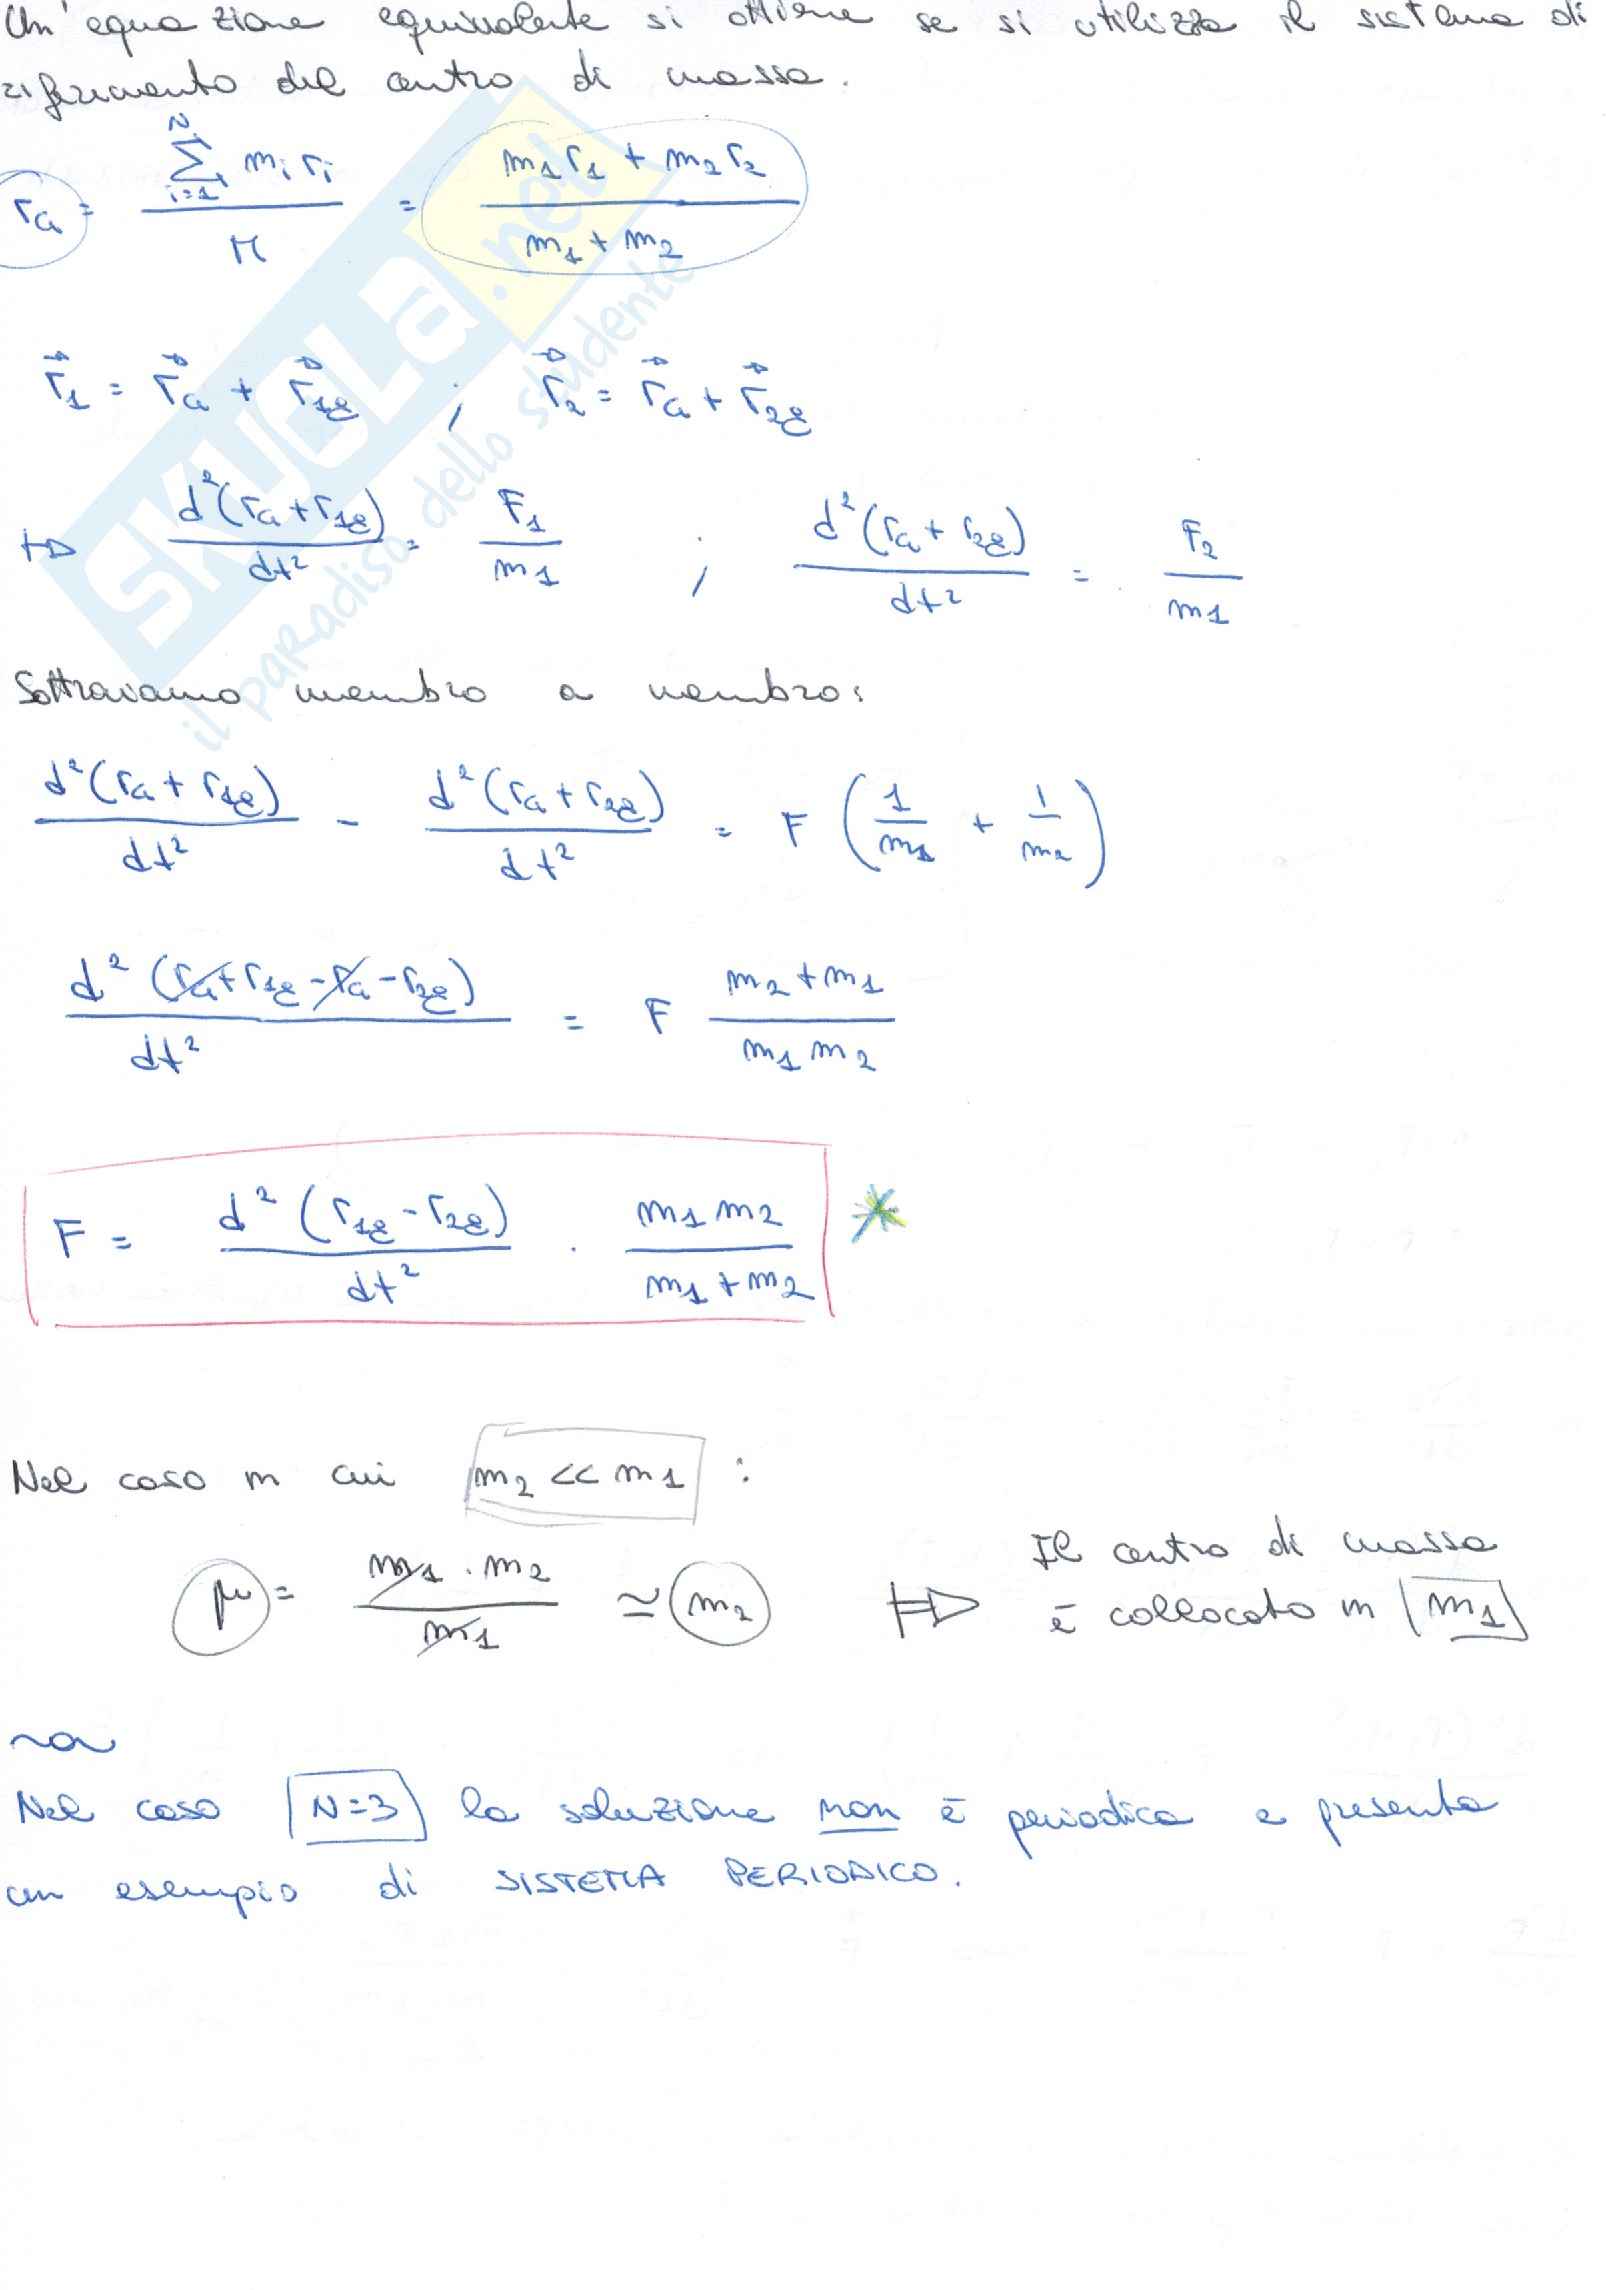 Un'equazione equivalente si ottiene se si utilizza il sistema di
riferimento del centro di massa.
r_G = \frac{\sum_{i=1}^{N} m_i r_i}{M} = \frac{m_1 r_1 + m_2 r_2}{m_1 + m_2}
\vec{r}_1 = \vec{r}_G + \vec{r}_{1g} ; \vec{r}_2 = \vec{r}_G + \vec{r}_{2g}
⇒ \frac{d^2(r_G + r_{1g})}{dt^2} = \frac{F_1}{m_1} ; \frac{d^2(r_G + r_{2g})}{dt^2} = \frac{F_2}{m_1}
Sottraiamo membro a membro:
\frac{d^2(r_G + r_{1g})}{dt^2} - \frac{d^2(r_G + r_{2g})}{dt^2} = F (\frac{1}{m_1} + \frac{1}{m_2})
\frac{d^2(r_G + r_{1g} - r_G - r_{2g})}{dt^2} = F \frac{m_2 + m_1}{m_1 m_2}
F = \frac{d^2(r_{1g} - r_{2g})}{dt^2} · \frac{m_1 m_2}{m_1 + m_2} *
Nel caso in cui m_2 << m_1 :
μ = \frac{m_1 · m_2}{m_1} ≃ m_2 ⇒ Il centro di massa
è collocato in m_1
Nel caso N=3 la soluzione non è periodica e presenta
un esempio di SISTEMA PERIODICO.
SKUOLA.net
il paradiso dello studente